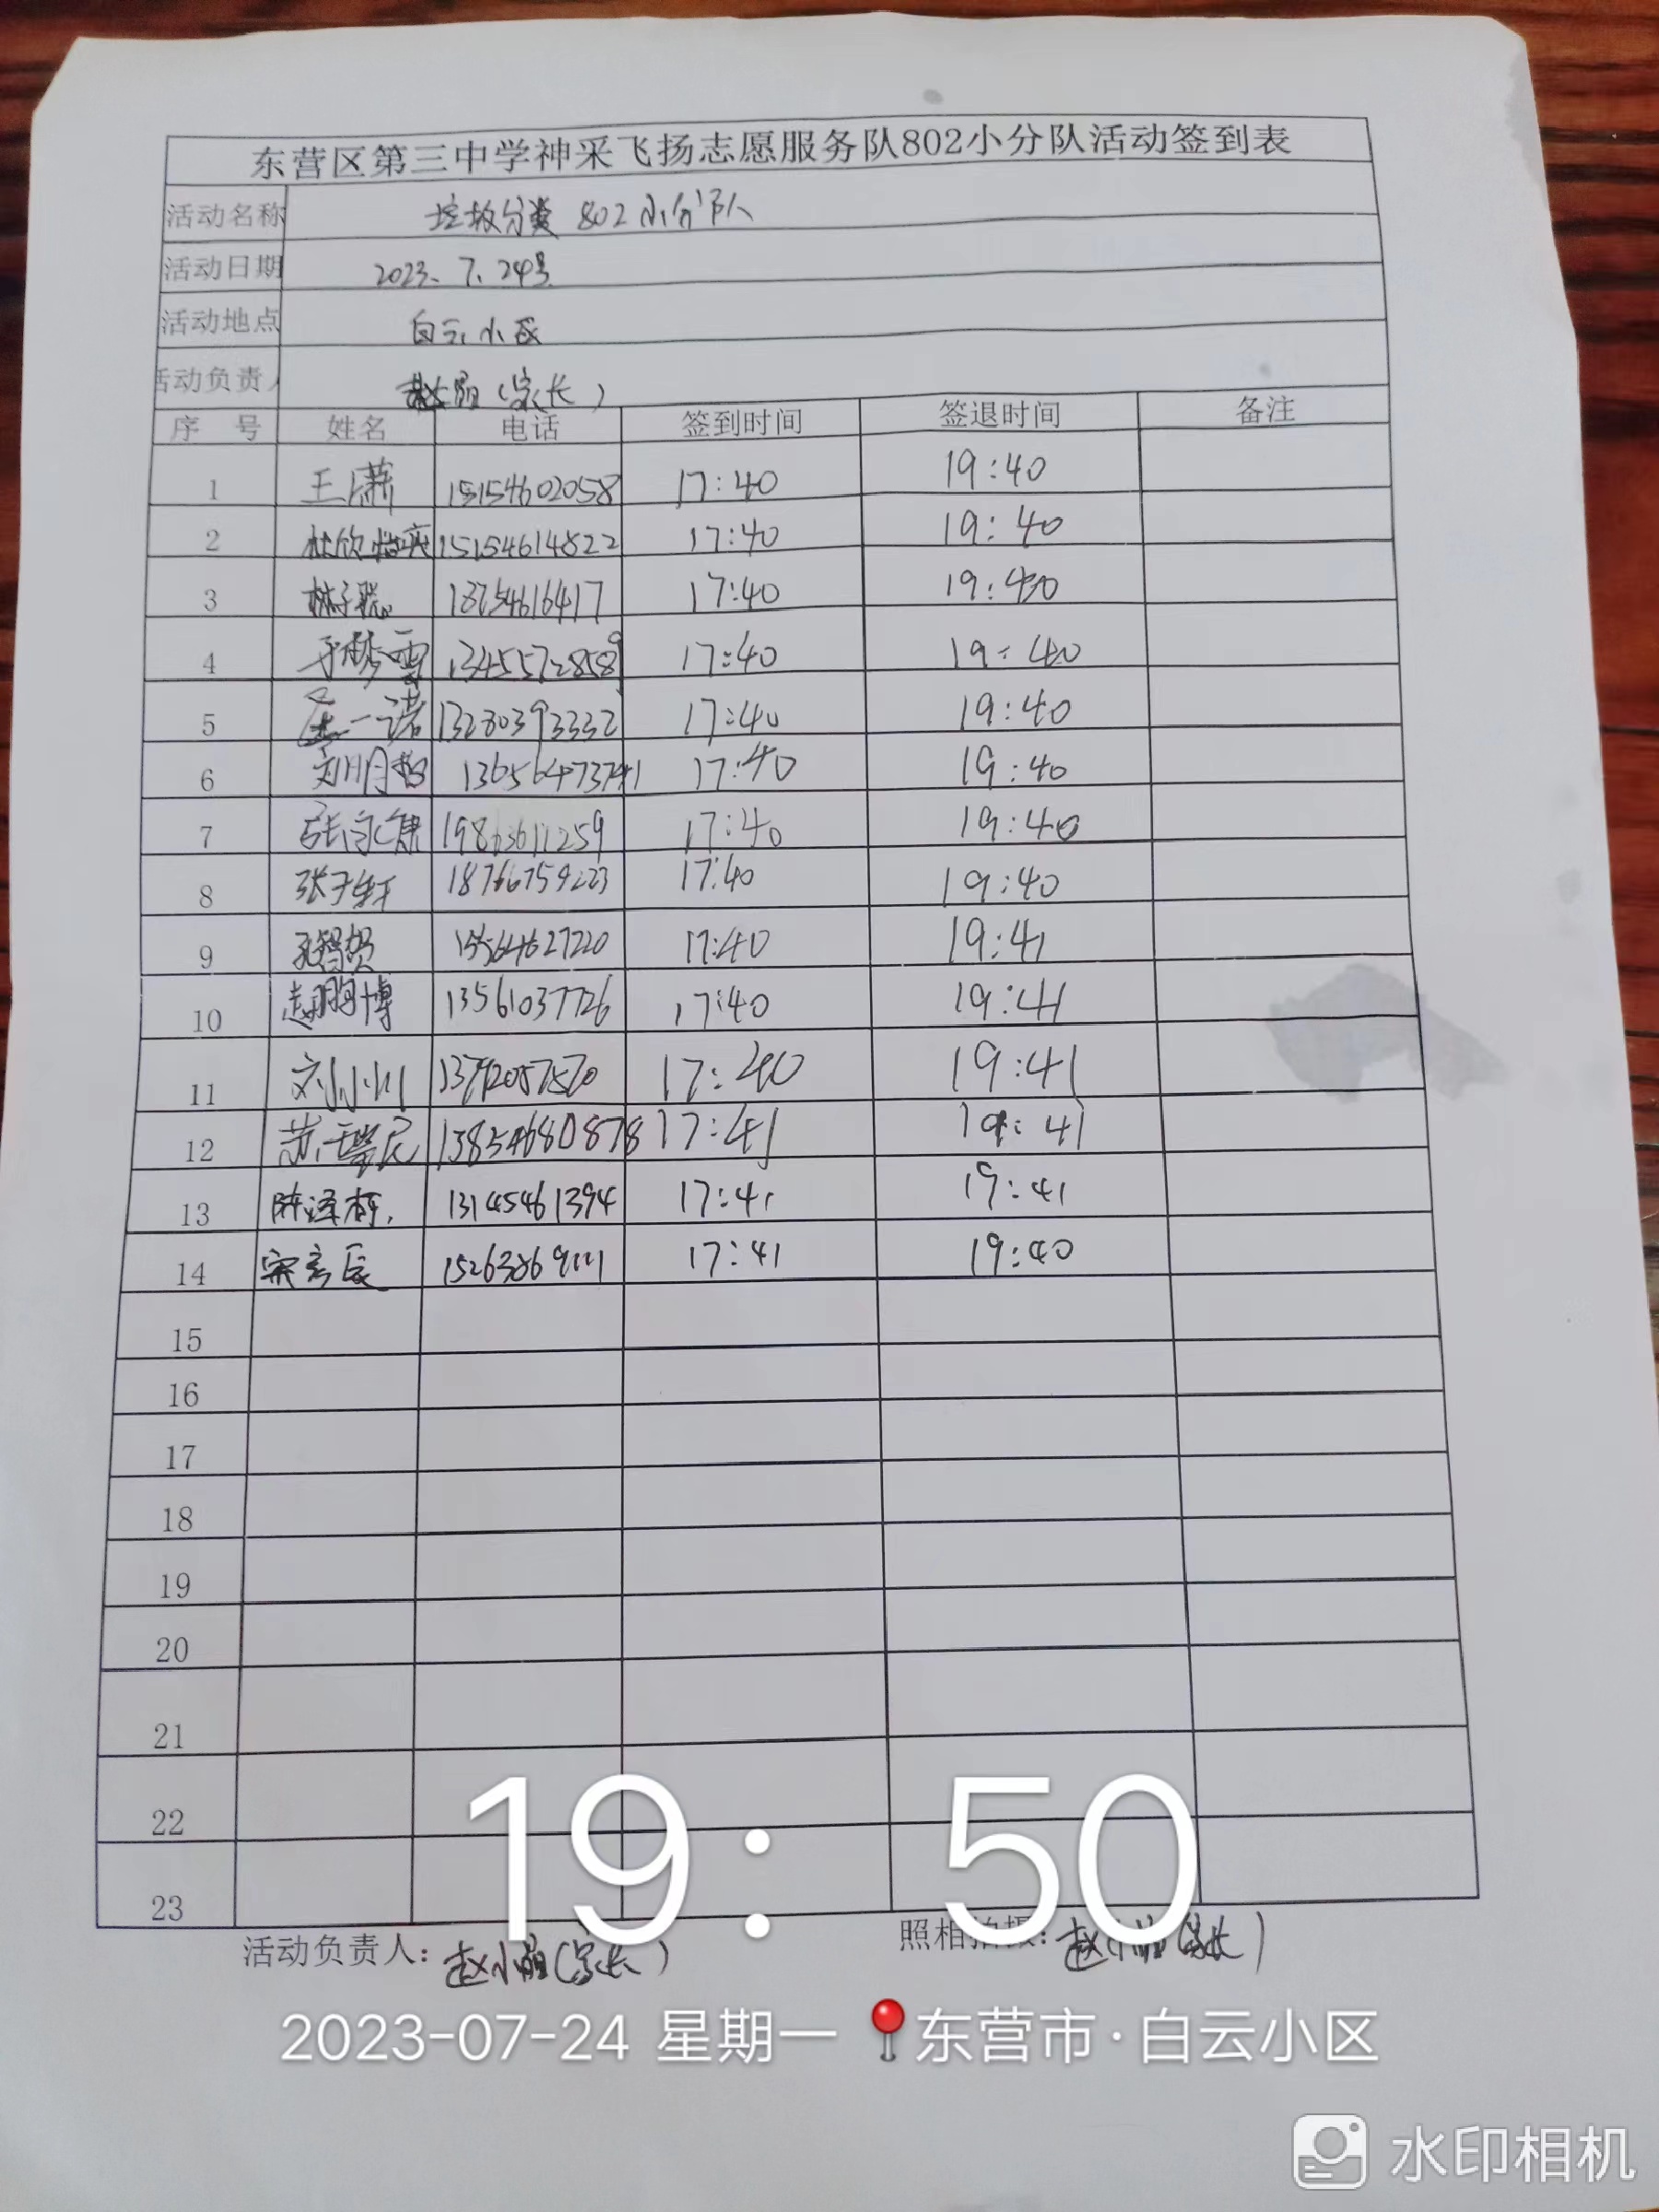 东营区第三中学神采飞扬志愿服务队802小分队活动签到表
活动名称 垃圾分类 802小分队
活动日期 2023.7.24号
活动地点 白云小区
活动负责人 (家长)
序号 姓名 电话 签到时间 签退时间 备注
1 王潇 15154602058 17:40 19:40
2 15154614822 17:40 19:40
3 林子聪 17:40
4 于梦雪 17:40 19:40
5 一诺 13280393332 17:40 19:40
6 刘明哲 17:40 19:40
7 张永康 19863611259 17:40 19:40
8 张子轩 18766759223 17:40 19:40
9 孔智贺 15564627220 17:40 19:41
10 13561037726 17:40 19:41
11 刘小川 17:40 19:41
12 苏瑞辰 13854680878 17:41 19:41
13 陈泽 13145461394 17:41 19:41
14 宋彦辰 15263869111 17:41 19:40
15
16
17
18
19
20
21
22
23
19:50
活动负责人：赵小丽(家长) 照相拍摄：赵小丽(家长)
2023-07-24 星期一 东营市·白云小区
水印相机